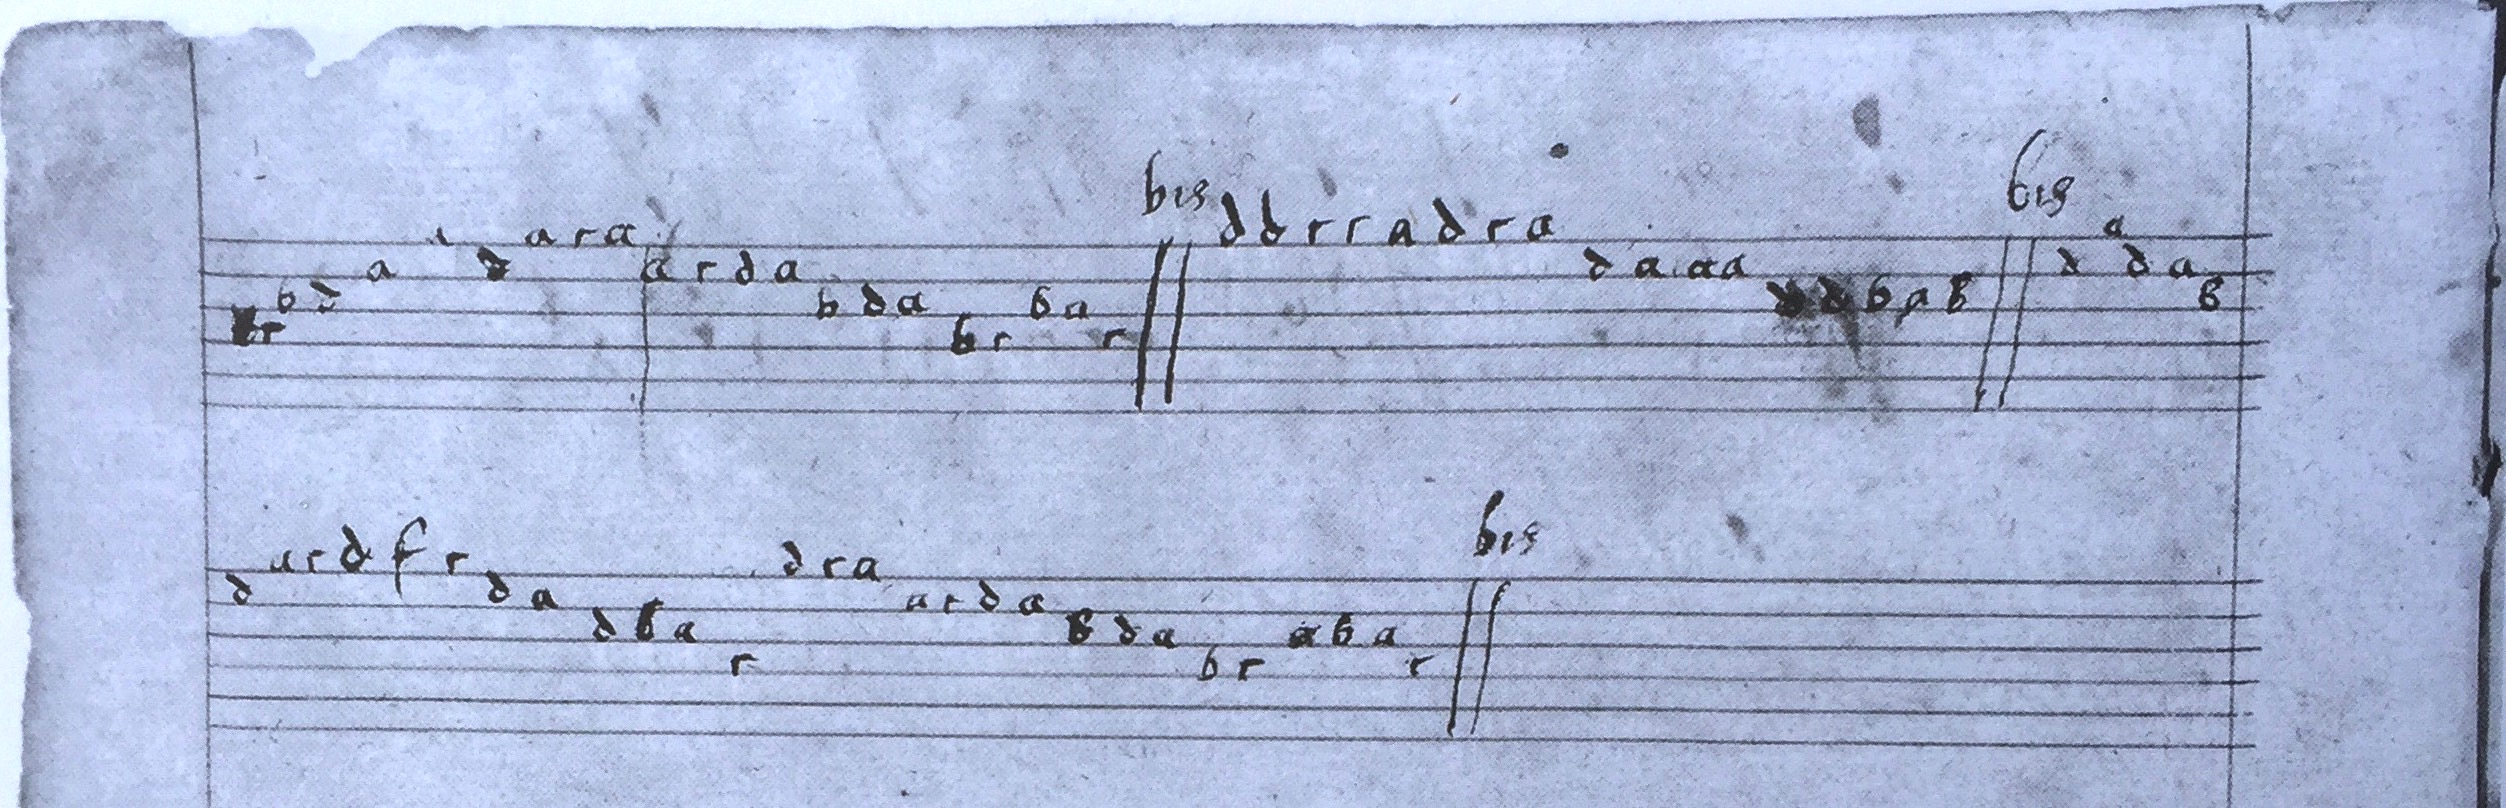 r b d a d a r a a r d a b d a b r b a r bis d d r r a d r a d a a a d b a b bis d a d a b
d a r d f r d a d b a r d r a a r d a b d a b r a b a r bis